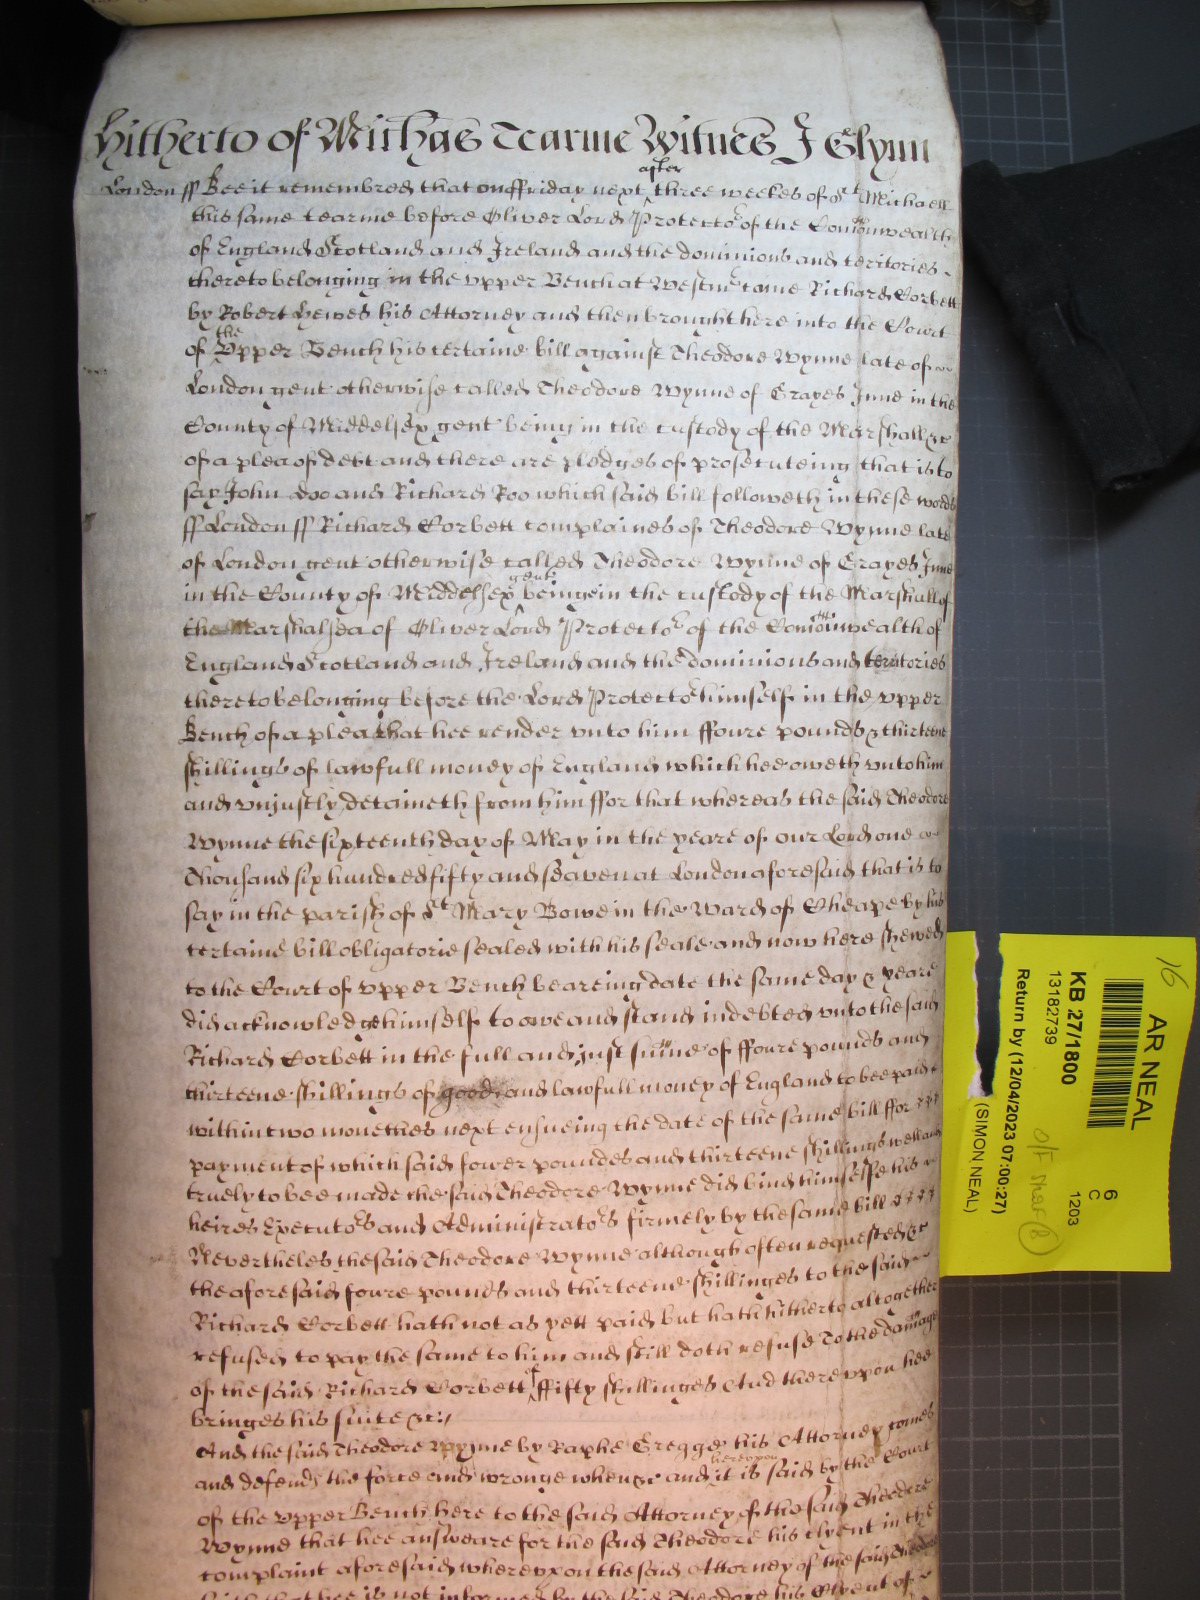 Hitherto of Michas Tearme Witnes J Glynn
London ss Bee it remembred that on ffriday next after three weekes of St Michaell
this same tearme before Oliver Lord Protector of the Comonwealth
of England Scotland and Ireland and the dominions and teritories
thereto belonging in the vpper Bench at Westmr came Richard Corbett
by Robert Hewes his Attorney and then brought here into the Court
of the Vpper Bench his certaine bill against Theodore Wynne late of
London gent otherwise called Theodore Wynne of Grayes Inne in the
County of Middelsex gent being in the custody of the Marshall &c
of a plea of debt and there are pledges of prosecuteing that is to
say John Doo and Richard Roo which said bill followeth in these words
ss London ss Richard Corbett complaines of Theodore Wynne late
of London gent otherwise called Theodore Wynne of Grayes Inne
in the County of Middelsex gent beinge in the custody of the Marshall of
the Marshalsea of Oliver Lord Protector of the Comonwealth of
England Scotland and Ireland and the dominions and teritories
thereto belonging before the Lord Protector himself in the vpper
Bench of a plea that hee render vnto him ffoure pounds & thirteene
shillings of lawfull money of England which hee oweth vnto him
and vnjustly detaineth from him ffor that whereas the said Theodore
Wynne the sixteenth day of May in the yeare of our Lord one
Thousand six hundred fifty and seaven at London aforesaid that is to
say in the parish of St Mary Bowe in the Ward of Cheape by his
certaine bill obligatorie sealed with his seale and now here shewed
to the Court of vpper Bench beareing date the same day & yeare
did acknowledge himself to owe and stand indebted vnto the said
Richard Corbett in the full and just sume of ffoure pounds and
thirteene shillings of good and lawfull money of England to bee paid
within two monethes next ensueing the date of the same bill ffor
payment of which said fower poundes and thirteene shillings well and
truely to bee made the said Theodore Wynne did bind himselfe his
heires Executors and Administrators firmely by the same bill
Nevertheles the said Theodore Wynne although often requested &c
the aforesaid foure pounds and thirteene shillinges to the said
Richard Corbett hath not as yett paid but hath hitherto altogether
refused to pay the same to him and still doth refuse To the damage
of the said Richard Corbett of ffifty shillinges And therevpon hee
bringes his suite &c
And the said Theodore Wynne by Raphe Gregge his Attorney comes
and defends the force and wronge when &c and herevpon it is said by the Court
of the vpper Bench here to the said Attorney of the said Theodore
Wynne that hee answeare for the said Theodore his clyent in the
complaint aforesaid wherevpon the said Attorney of the said Theodore
saith that hee is not informed by the said Theodore his Clyent of
16
AR NEAL
KB 27/1800
13182739
Return by (12/04/2023 07:00:27)
(SIMON NEAL)
6
C
1203